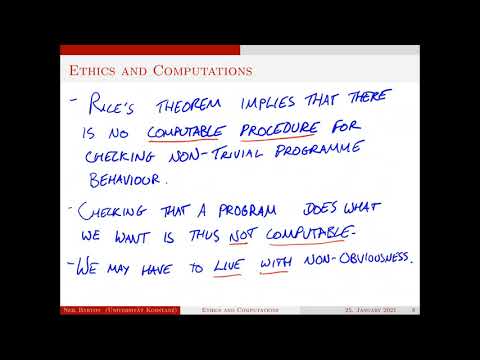 Ethics and Computations
- Rice's theorem implies that there
is no computable procedure for
checking non-trivial programme
behaviour.
- Checking that a program does what
we want is thus not computable.
- We may have to live with non-obviousness.
Neil Barton (Universität Konstanz) Ethics and Computations 25. January 2021 8